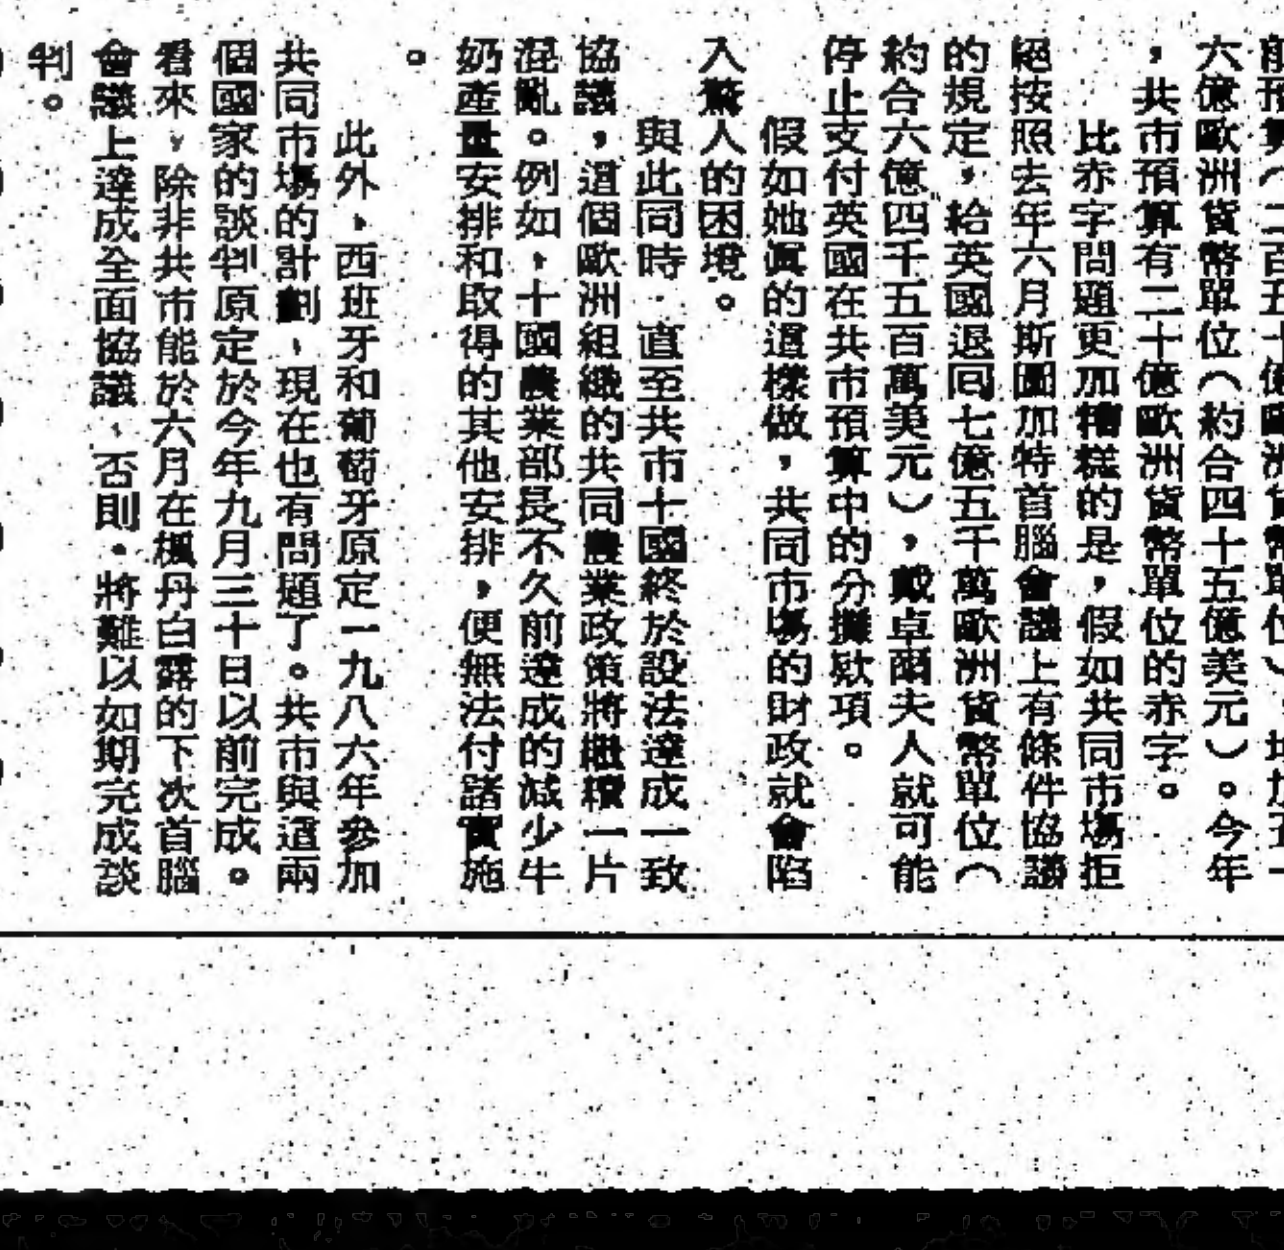 六億歐洲貨幣單位（約合四十五億美元）。今年
，共市預算有二十億歐洲貨幣單位的赤字。
比赤字問題更加糟糕的是，假如共同市場拒
絕按照去年六月斯圖加特首腦會議上有條件協議
的規定，給英國退回七億五千萬歐洲貨幣單位（
約合六億四千五百萬美元），戴卓爾夫人就可能
停止支付英國在共市預算中的分攤欵項。
假如她真的這樣做，共同市場的財政就會陷
入驚人的困境。
與此同時．直至共市十國終於設法達成一致
協議，這個歐洲組織的共同農業政策將繼續一片
混亂。例如，十國農業部長不久前達成的減少牛
奶產量安排和取得的其他安排，便無法付諸實施
。
此外，西班牙和葡萄牙原定一九八六年參加
共同市場的計劃、現在也有問題了。共市與這兩
個國家的談判原定於今年九月三十日以前完成。
看來，除非共市能於六月在楓丹白露的下次首腦
會議上達成全面協議、否則．將難以如期完成談
判。